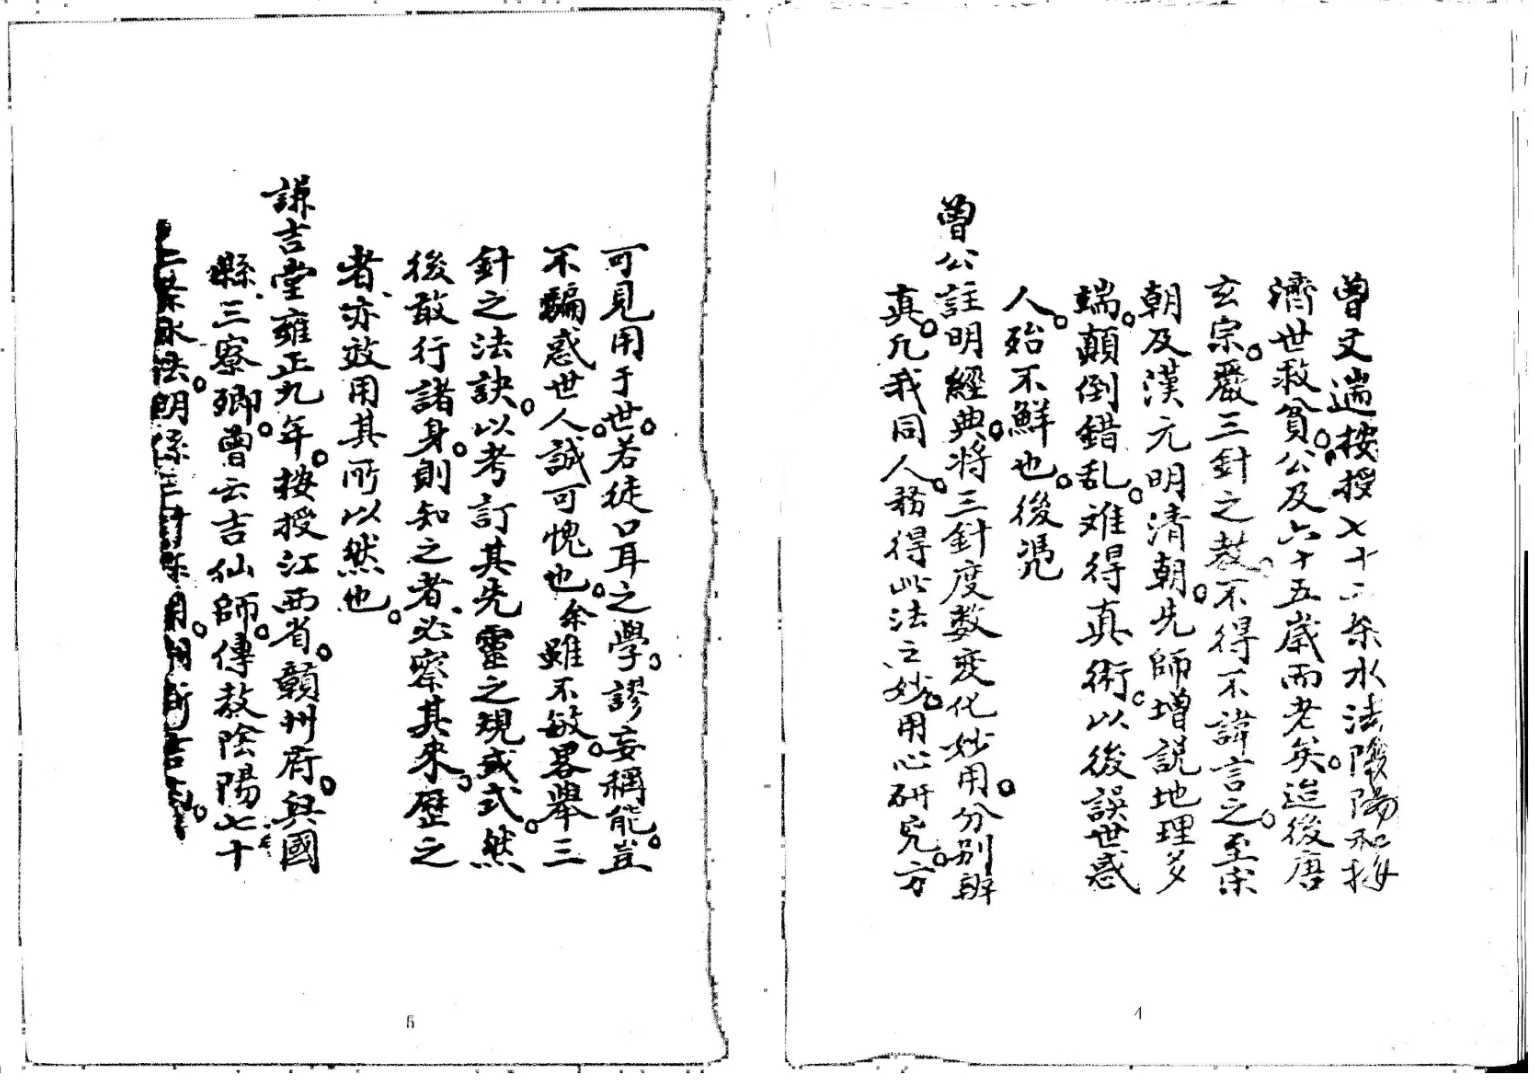 曾文遄按授七十二条水法陰陽和按
濟世救貧公及六十五歲而老矣迨後唐
玄宗嚴三針之教不得不諱言之至宋
朝及漢元明清朝先師增説地理多
端顛倒錯乱难得真術以後誤世惑
人殆不鮮也後凴
曾公註明經典将三針度数变化妙用分别辨
真凡我同人務得此法之妙用心研究方
4
可見用于世若徒口耳之學謬妄稱能豈
不騙惑世人誠可愧也余雖不敏畧舉三
針之法訣以考訂其先靈之規或式然
後敢行諸身則知之者必察其来歷之
者亦效用其所以然也
謙吉堂雍正九年按授江西省贛州府興國
縣三寮鄉曾云吉仙師傳教陰陽七十
二条水法明係三針
5